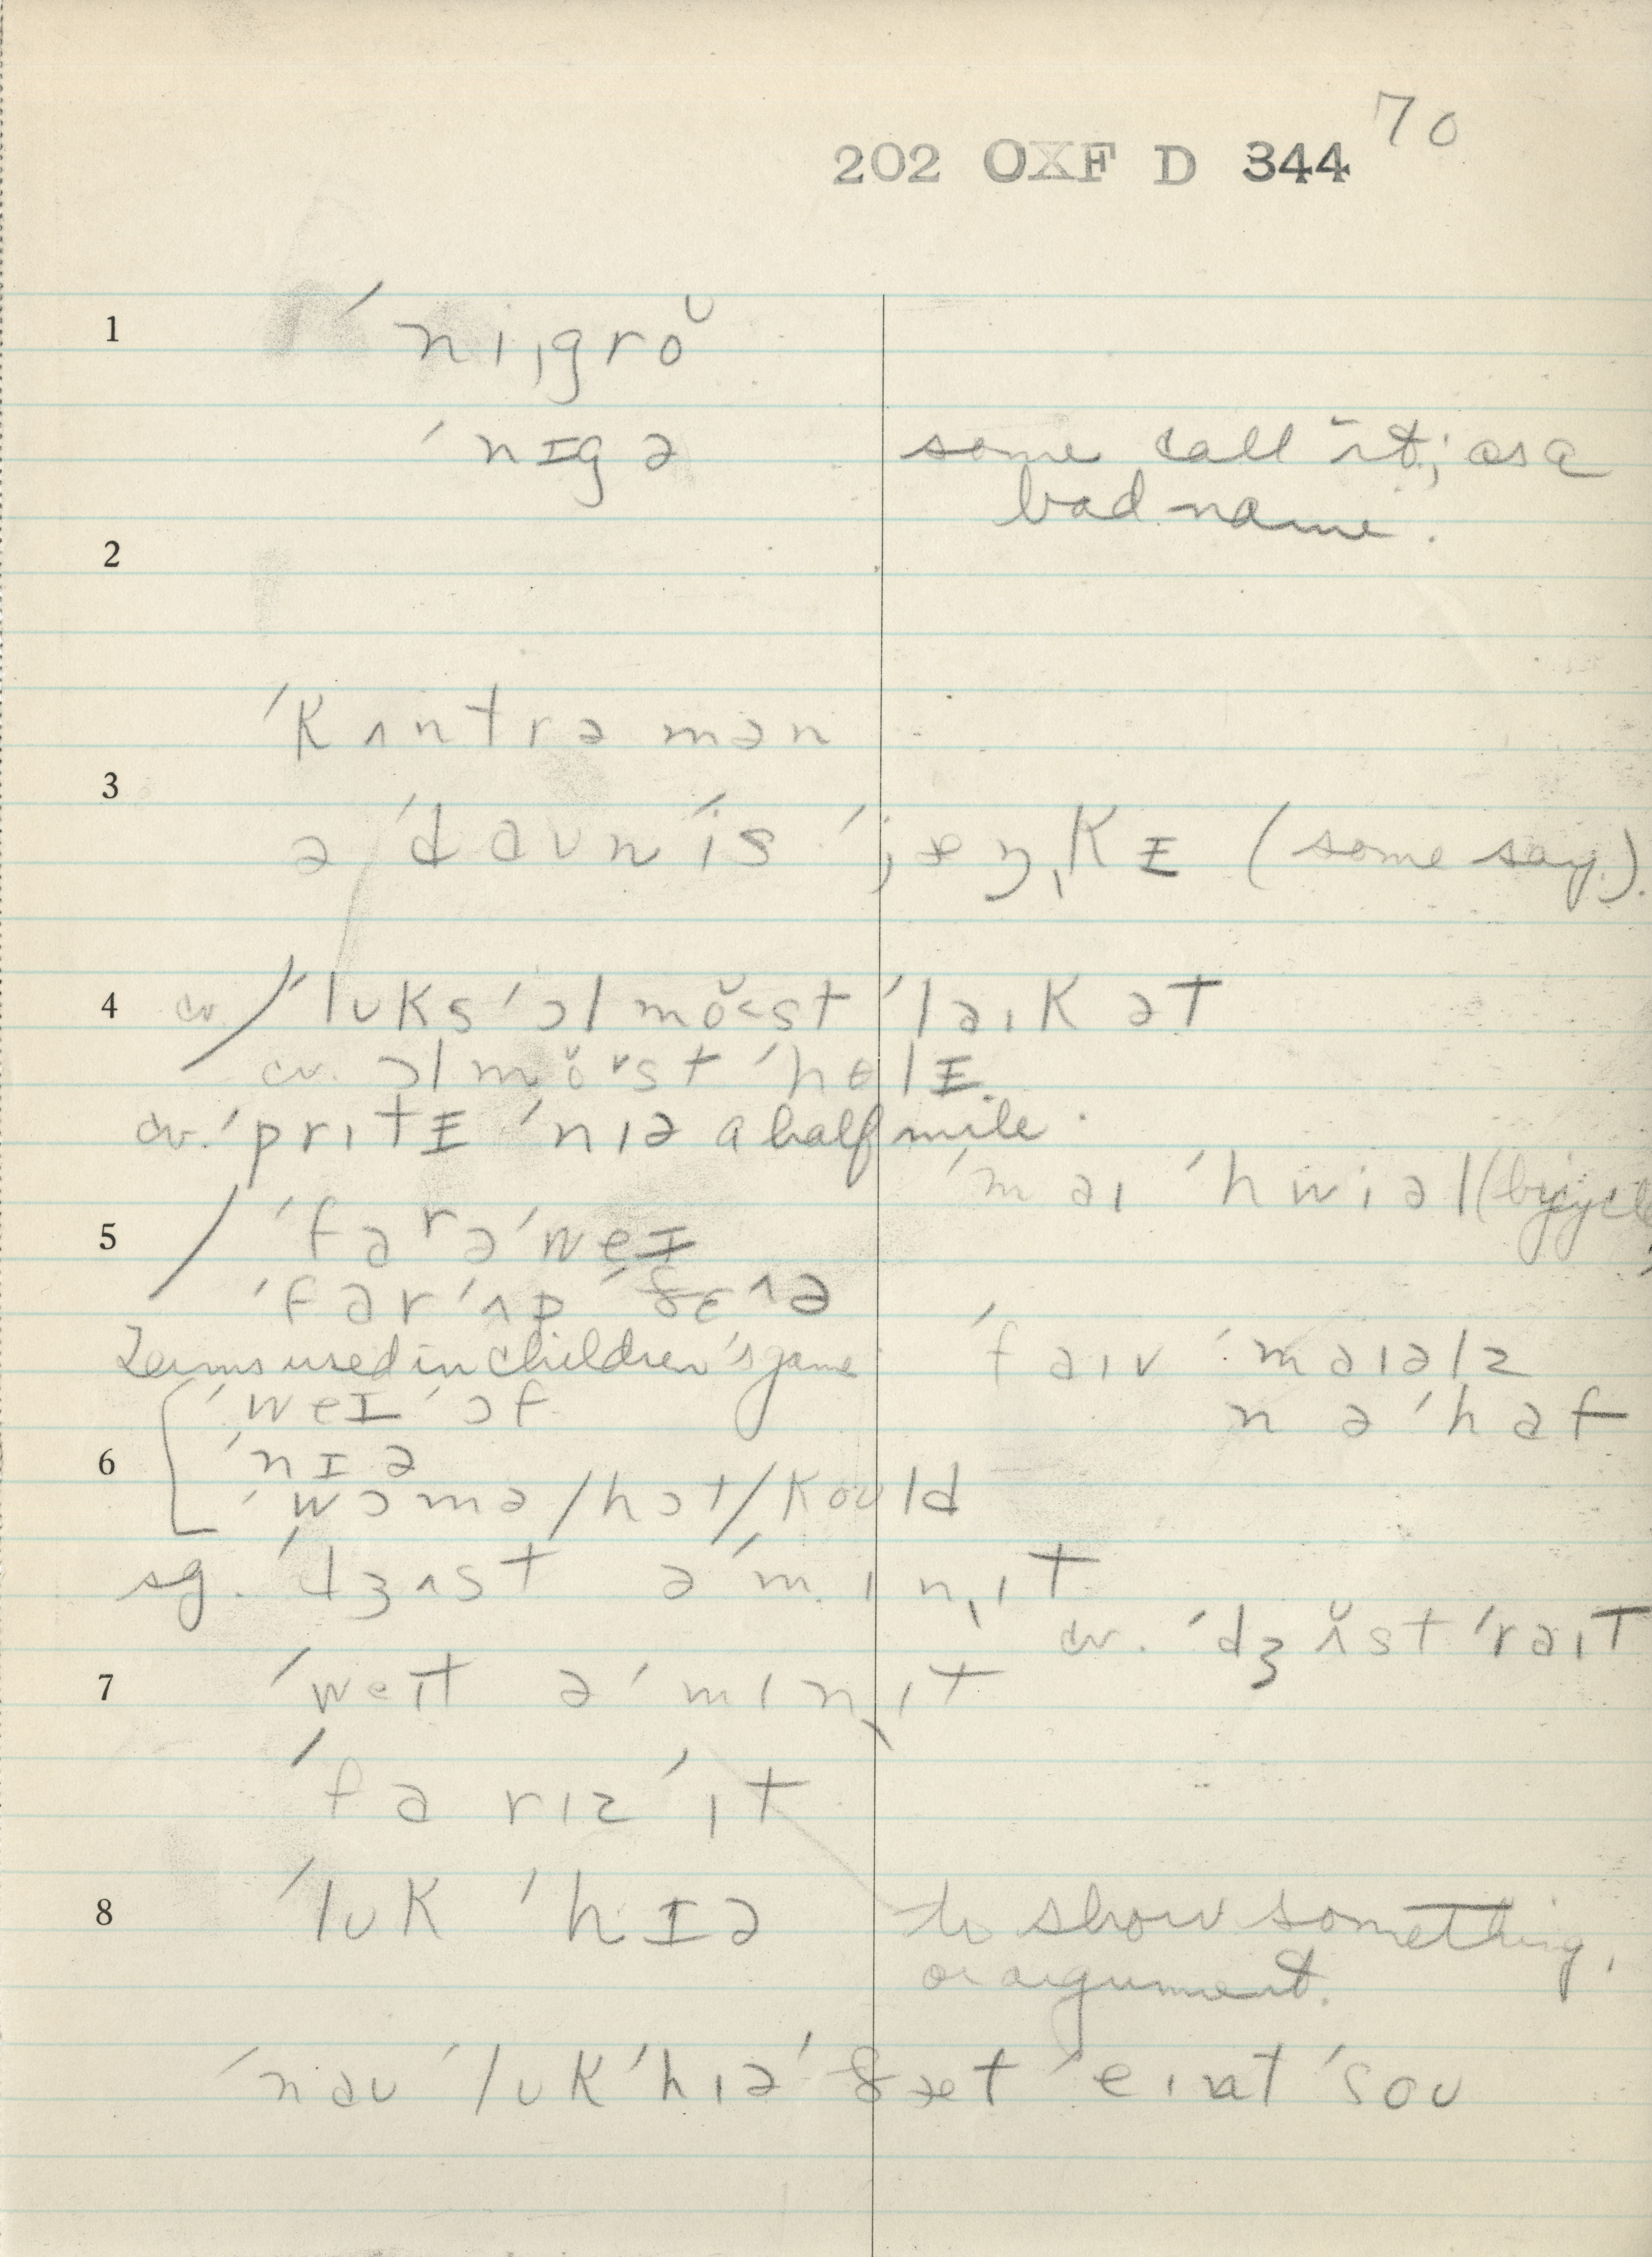 70
202 OXF D 344
1 ˈniˌgro˘
ˈnɪgə some call it; as a
bad name.
2
ˈkʌntrəmən
3
əˈdaʊnˈisˈjæŋˌkɪ (some say.)
4 cv. / ˈlʊksˈɔlmo˘<stˈlaɪkət
cv. ɔlmo˘ˇstˈhɵlɪ.
cv. ˈprɪtɪ ˈnɪə a half mile.
ˈmaɪ ˈhwiəl (bicycle)
5 / ˈfarəˈweɪ
ˈfarˈʌpˈðɛʌə
Terms used in children's game
ˈfaɪv ˈmaɪəlz
ˈweɪˈɔf
nəˈhaf
6 ˈnɪə
ˈwɔmə/hɔt/koʊld
sg. ˈdʒʌst əˈmɪnˌɪt
cv. ˈdʒʌ̆stˈraɪt
7 ˈweɪt əˈmɪnˌɪt
ˈfarɪzˈɪt
8 ˈlʊk ˈhɪə to show something,
or argument.
ˈnaʊ ˈlʊkˈhɪəˈðætˈeɪntˈsoʊ